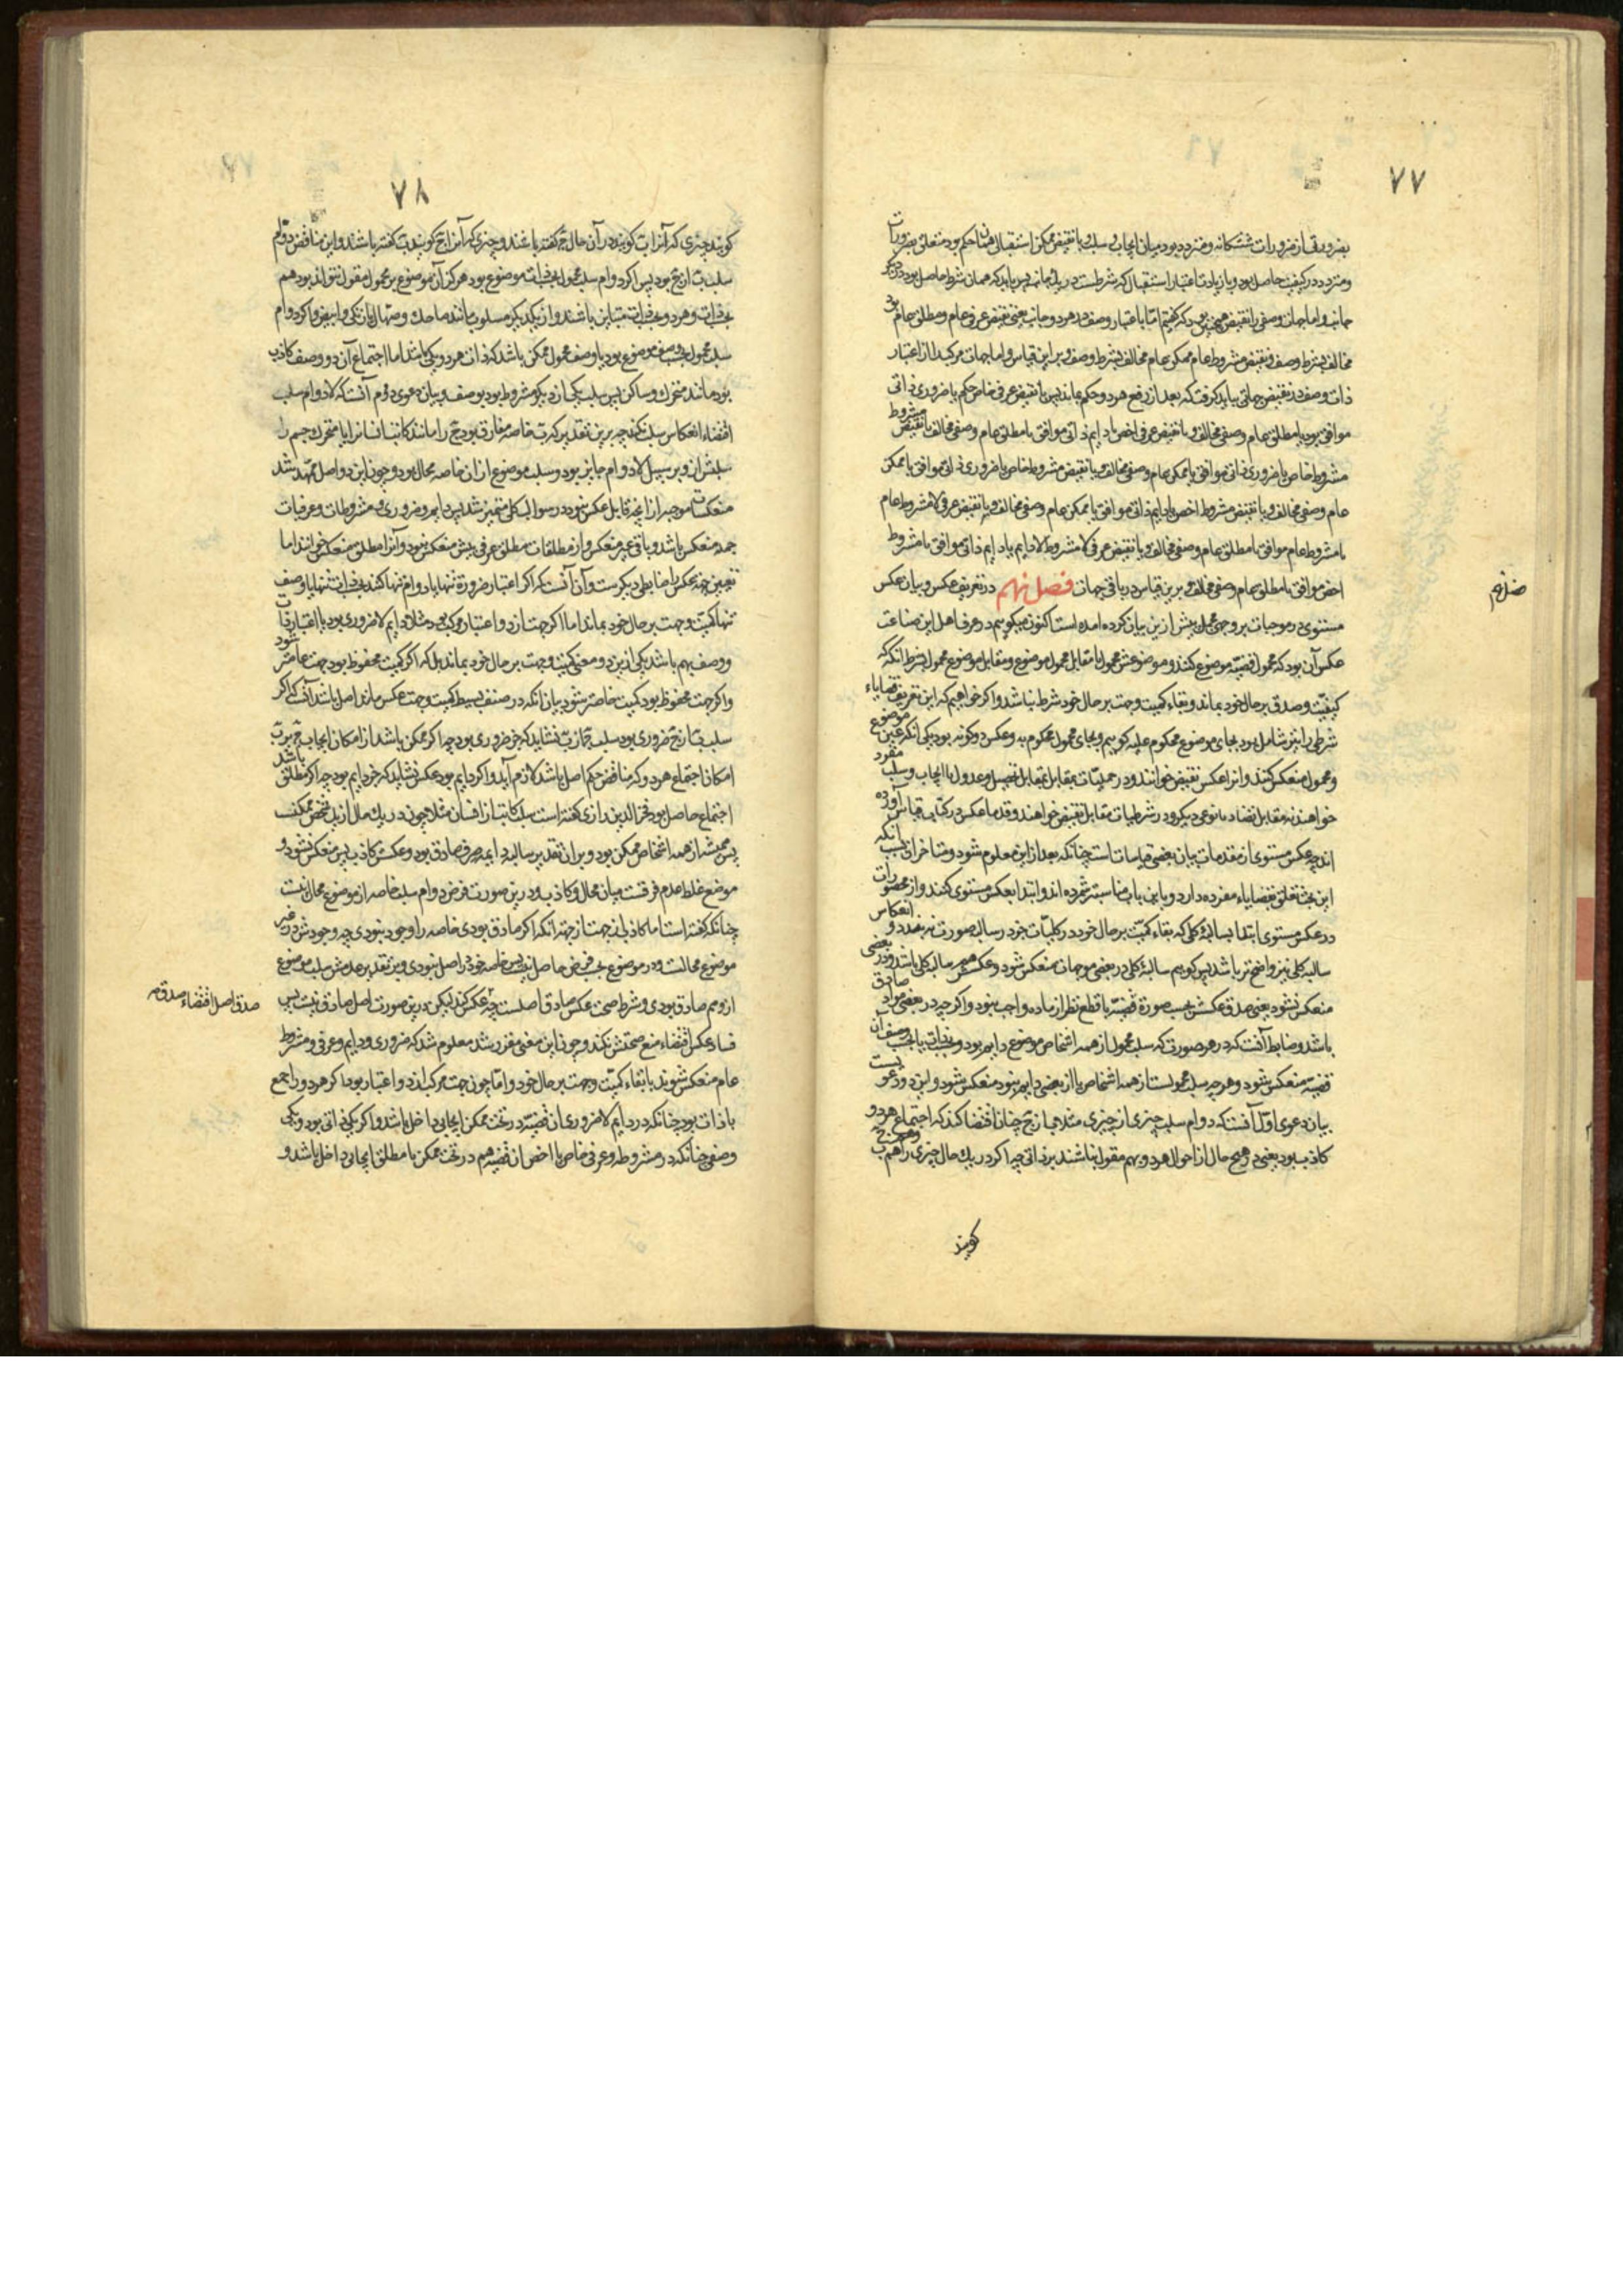 ۷۷
بضرورتی از ضرورات ششگانه و متردد بود میان ایجاب و سلب و با نقیض ممکن استقبالی همان حکم بود متعلق بضرورات
و متردد در کیفیت حاصل بود و با زیادت اعتبار استقبال که شرطست در یک جانب پس باید که همان شرط حاصل بود در دیگر
جانب و اما جهات وصفی را نقیض همچنین بود که گفتیم اما با اعتبار وصف در هر دو جانب یعنی نقیض عرفی عام و مطلق عام بود
مخالف بشرط وصف و نقیض مشروط عام ممکن عام مخالف بشرط وصف و برین قیاس و اما جهات مرکب را از اعتبار
ذات و وصف در نقیض جهاتی بباید گرفت که بعد از رفع هر دو حکم بماند پس با نقیض عرفی خاص حکم یا ضروری ذاتی
موافق بود یا مطلق عام وصفی مخالف و با نقیض عرفی اخص یا دایم ذاتی موافق یا مطلق عام وصفی مخالف با نقیض مشروط
مشروط خاص یا ضروری ذاتی موافق یا ممکن عام وصفی مخالف و با نقیض مشروط خاص یا ضروری ذاتی موافق یا ممکن
عام وصفی مخالف و با نقیض مشروط اخص یا دایم ذاتی موافق یا ممکن عام وصفی مخالف و با نقیض عرفی لا مشروط عام
یا مشروط عام موافق یا مطلق عام وصفی مخالف و با نقیض عرفی لا مشروط لا دایم یا دایم ذاتی موافق یا مشروط
اخص موافق یا مطلق عام وصفی مخالف و برین قیاس در باقی جهات فصل نهم در تعریف عکس و بیان عکس
فصل نهم
مستوی در موجبات بر وجهی مجمل پیش ازین بیان کرده آمده است اکنون میگوییم در عرف اهل این صناعت
عکس آن بود که محمول قضیه موضوع کنند و موضوعش محمول یا مقابل محمول موضوع و مقابل موضوع محمول بشرط آنکه
کیفیت و صدق بر حال خود بماند و بقاء کمیت و جهت بر حال خود شرط نباشد و اگر خواهیم که این تعریف قضایاء
شرطی را نیز شامل بود بجای موضوع محکوم علیه گوییم و بجای محمول محکوم به و عکس دو گونه بود یکی آنکه عین موضوع
و محمول منعکس کنند و آنرا عکس نقیض خوانند و در حملیات بمقابل مقابل تحصیل و عدول یا ایجاب و سلب مفرد
خواهند نه مقابل تضاد یا نوعی دیگر و در شرطیات مقابل نقیض خواهند و قدما عکس در کتاب قیاس آورده
اند چه عکس مستوی از مقدمات بیان بعضی قیاسات است چنانکه بعد ازین معلوم شود و متاخران بسبب آنکه
این بحث تعلق بقضایاء مفرده دارد و باین باب مناسبتر شمرده اند و ابتدا بعکس مستوی کنند و از محصورات
در عکس مستوی ابتدا بسالبهٔ کلی که بقاء کمیت بر حال خود در کلیات جز در سالبه صورت نه بندد و انعکاس
سالبه کلی نیز واضح تر باشد پس گوییم سالبهٔ کلی در بعضی موجهات منعکس شود و عکسش هم سالبه کلی باشد و در بعضی
منعکس نشود یعنی صدق عکسش بحسب صورت قضیه با قطع نظر از ماده واجب نبود و اگر چه در بعضی مواد صادق
باشد و ضابط آنست که در هر صورتی که سلب محمول از همه اشخاص موضوع دایم بود و بذات یا بحسب وصف آن
قضیه منعکس شود و هر چه سلب محمولست از همه اشخاص یا از بعضی دایم نبود منعکس نشود و این دو دعویست
بیان دعوی اول آنست که دوام سلب چیزی از چیزی مثلا ب از ج چنان اقتضا کند که اجتماع هر دو
کاذب بود یعنی در هیچ حال از احوال هر دو بهم مقول نباشند بر ذاتی چه اگر در یک حال چیزی را هم ب و هم ج
گویند
۷۸
گویند چیزی که آنرا ب گویند در آن حال ج گفته باشند و چیزی که آنرا ج گویند ب گفته باشند و این مناقض دوام
سلب ب از ج بود پس اگر دوام سلب محمول بحسب ذات موضوع بود هرگز آن موضوع بر محمول مقول نتواند بود هم
بحسب ذات و هر دو بحسب ذات متباین باشند و از یکدیگر مسلوب مانند ضاحک و صهال یا زنگی و ابیض و اگر دوام
سلب محمول بحسب وصف موضوع بود یا وصف محمول ممکن باشد که ذات هر دو یکی باشد اما اجتماع آن دو وصف کاذب
بود مانند متحرک و ساکن پس سلب یکی از دیگر مشروط بود بوصف و بیان دعوی دوم آنست که لا دوام سلب
اقتضاء انعکاس سلب نکند چه برین تقدیر که ب خاصه مفارق بود ج را مانند کاتب انسان را یا متحرک جسم را
سلبش از او بر سبیل لا دوام جایز بود و سلب موضوع از آن خاصه محال بود و چون این دو اصل ممهد شد
منعکسات موجبه از آنچه قابل عکس نبود در سوالب کلی متمیز شد پس دایم و ضروری و مشروطات و عرفیات
جمله منعکس باشد و باقی غیر منعکس و از مطلقات مطلق عرفی بیش منعکس نبود و آنرا مطلق منعکس خوانند اما
تعیین جهت عکس را ضابطی دیگرست و آن آنست که اگر اعتبار ضرورت تنها یا دوام تنها کنند بحسب ذات تنها یا وصف
تنها کمیت و جهت بر حال خود بماند اما اگر جهت از دو اعتبار مرکب بود مثلا دایم لا ضروری بود یا اعتبار ذات
و وصف بهم باشد یکی ازین دو معنی کمیت و جهت بر حال خود بماند بل که اگر کمیت محفوظ بود جهت عامتر شود
و اگر جهت محفوظ بود کمیت خاصتر شود بیان آنکه در صنف بسیط کمیت و جهت عکس مانند اصل باشد آنست که اگر
سلب ب از ج ضروری بود سلب ج از ب نشاید که جز ضروری بود چه اگر ممکن باشد از امکان ایجاب ج بر ب
امکان اجتماع هر دو که مناقض حکم اصل باشد لازم آید و اگر دایم بود عکس نشاید که جز دایم بود چه اگر مطلق باشد
اجتماع حاصل بود فخرالدین رازی گفته است سلب کاتب از انسان مثلا چون در یک حال از یک شخص ممکنست
پس همیشه از همه اشخاص ممکن بود و بر آن تقدیر سالبه دایمه صرف صادق بود و عکسش کاذب پس منعکس نشود و
موضع غلط عدم فرقست میان محال و کاذب و درین صورت فرض دوام سلب خاصه از موضوع محال نیست
چنانکه گفته است اما کاذب از جهت از جهت آنکه اگر صادق بودی خاصه را وجود نبودی چه وجودش در غیر
موضوع محالست و در موضوع بحسب فرض حاصل نه پس خاصه خود در اصل نبودی و برین تقدیر عدمش سلب موضوع
از و هم صادق بودی و شرط صحت عکس صادق اصلست چه عکس کند لیکن درین صورت اصل صادق نیست پس
صدق اصل اقتضاء صدق
فساد عکس اقتضاء منع صحتش نکند و چون این معنی مقرر شد معلوم شد که ضروری و دایم و عرفی و مشروط
عام منعکس شوند با بقاء کمیت و جهت بر حال خود و اما چون جهت مرکب از دو اعتبار بود اگر هر دو راجع
با ذات بود چنانکه در دایم لا ضروری آن قضیه در تحت ممکن ایجابی داخل باشد و اگر یکی ذاتی بود و یکی
وصفی چنانکه در مشروط و عرفی خاص یا اخص آن قضیه هم در تحت ممکن یا مطلق ایجابی داخل باشد و